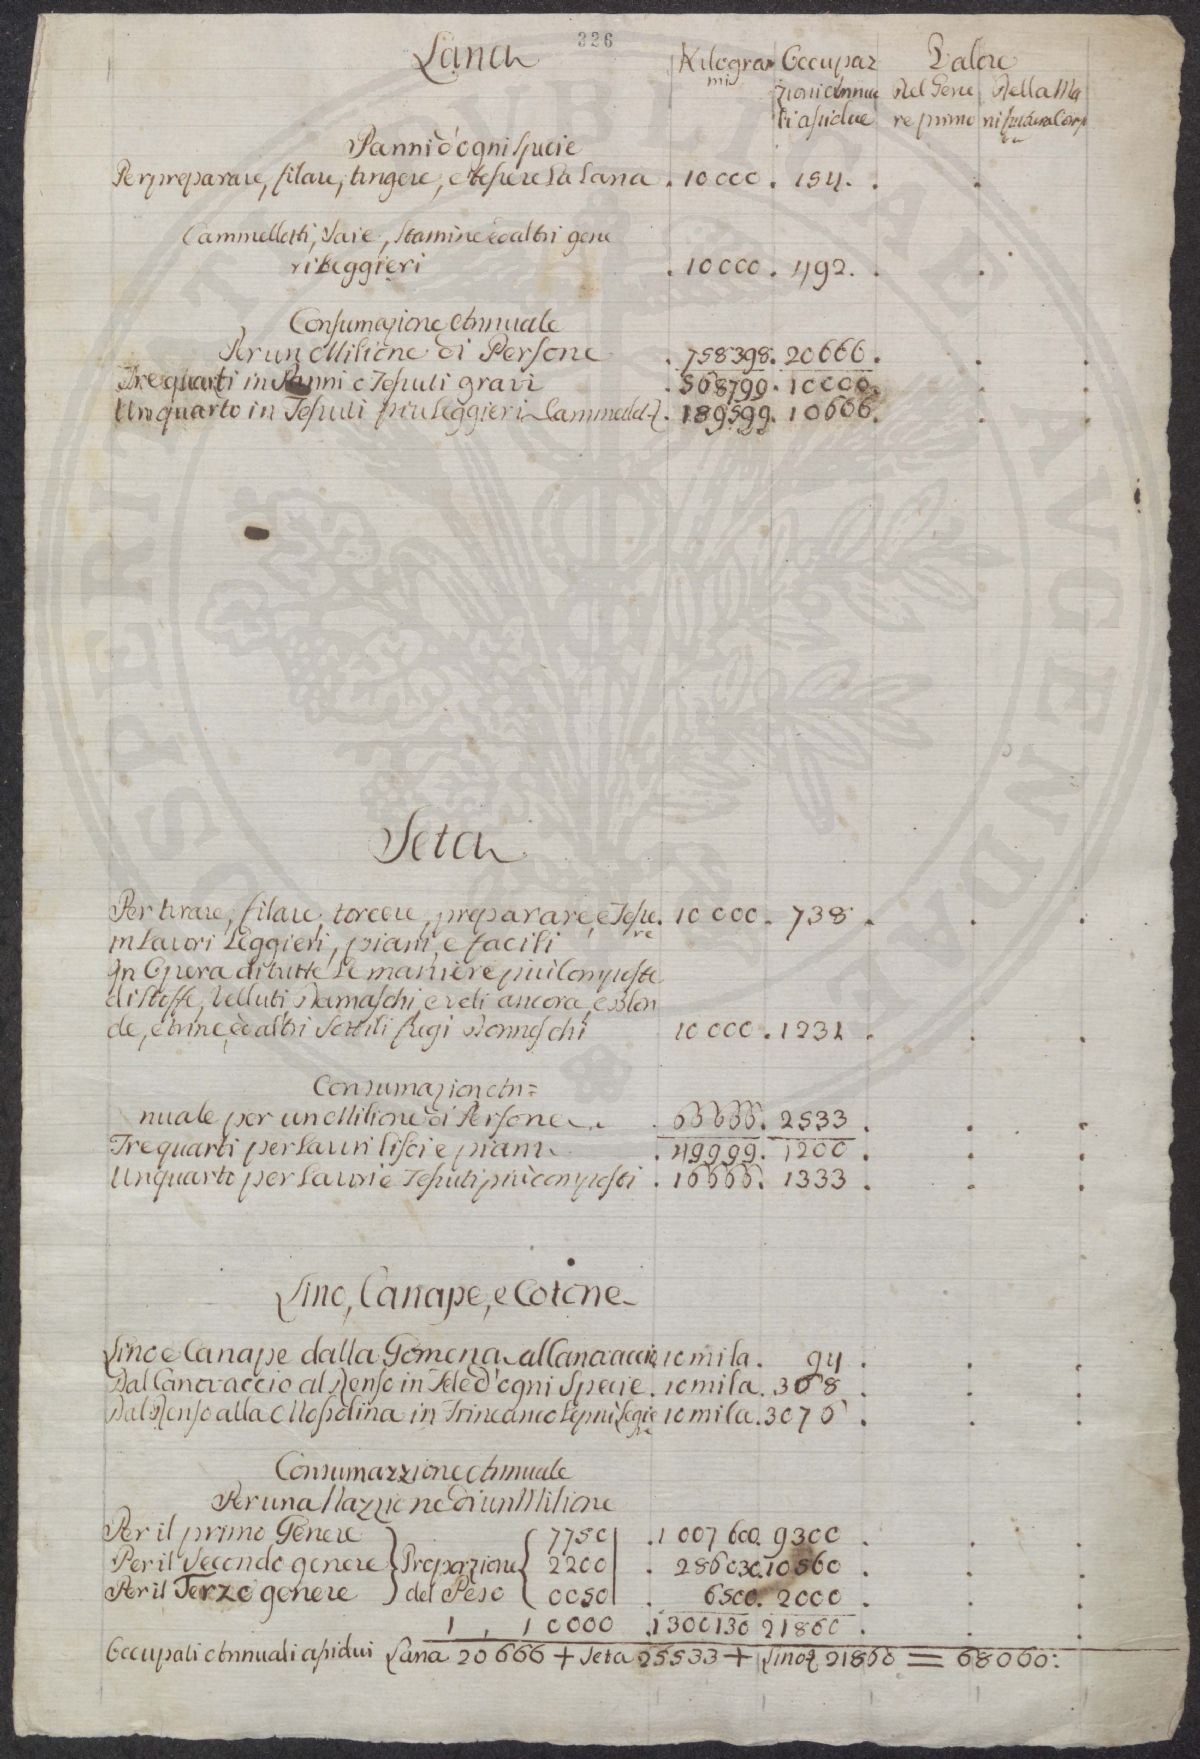 326
Lana
Kilogra Occupaz Valore
mi zioni Annua Nel Gene Nella Ma
li assidue re primo nifattura Comp
Panni d'ogni specie
Per preparare, filare, tingere, e tessere la Lana . 10000 . 154 .
Cammellotti, Saie, Stamine ed altri gene
ri Leggieri . 10000 . 492 .
Consumazione Annuale
Per un Milione di Persone . 758398 . 20666 .
Tre quarti in Panni e Tessuti gravi . 568799 . 10000 .
Un quarto in Tessuti piu Leggieri . 189599 . 10666 .
Seta
Per tirare, filare, torcere, preparare, e Tesse . 10000 . 738 .
re
in Lavori Leggieri, piani, e facili
In Opera di tutte le maniere più Composte
di Stoffe, Velluti, Damaschi e veli ancora, e Blon
de, ed altri Sottili fregi Donneschi 10000 . 1231 .
Consumazion An=
nuale per un Milione di Persone . 66666 . 2533 .
Tre quarti per Lavori lisci e piani . 49999 . 1200 .
Un quarto per Lavori e Tessuti più composti . 16666 . 1333 .
Lino, Canape, e Cotone
Lino e Canape dalla Gomena al Canavaccio 10 mila . 94 .
Dal Canavaccio al Renso in Tele d'ogni Specie . 10 mila . 308 .
Dal Renso alla Mosolina in 10 mila . 3076 .
Consumazzione Annuale
Per una Nazzione di un Milione
Per il primo Genere 7750 . 1007600 . 9300 .
Per il Secondo genere Proporzione 2200 . 286030 . 10560 .
Per il Terzo genere del Peso 0050 . 6500 . 2000 .
1 , 10000 . 1300130 21860 .
Occupati Annuali assidui Lana 20666 + Seta 25533 + Lino 21860 = 68060 :
SPERITATI PVBLICAE AVGENDAE